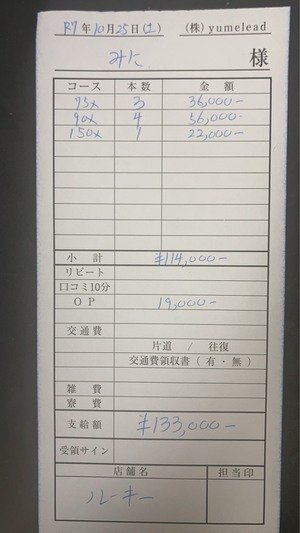 R7年10月25日(土) (株) yumelead
みに 様
コース 本数 金額
75× 3 36,000-
90× 4 56,000-
150× 1 22,000-
小計 ¥114,000-
リピート
口コミ10分
OP 19,000-
交通費
片道 / 往復
交通費領収書 ( 有・無 )
雑費
寮費
支給額 ¥133,000-
受領サイン
店舗名 担当印
ルーキー